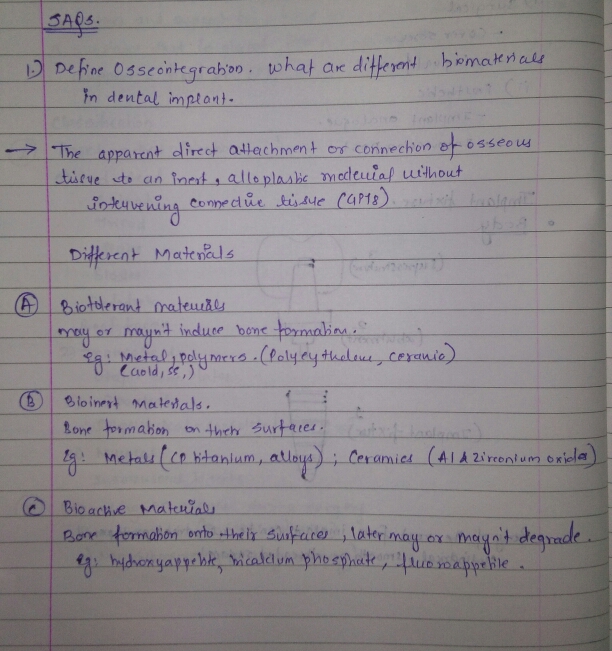 SAQs.
1.) Define Osseointegration. What are different biomaterials
in dental implant.
→ The apparent direct attachment or connection of osseous
tissue to an inert, alloplastic material without
intervening connective tissue (GPT8).
Different Materials
(A) Biotolerant materials
may or mayn't induce bone formation.
Eg: Metal, polymers. (Polyethylene, ceramic)
(Gold, SS,)
(B) Bioinert Materials.
Bone formation on their surfaces.
Eg: Metals (CP titanium, alloys); Ceramics (Al & zirconium oxides)
(C) Bioactive Materials
Bone formation onto their surfaces, later may or mayn't degrade.
Eg: hydroxyappetite, tricalcium phosphate, fluoroappetite.